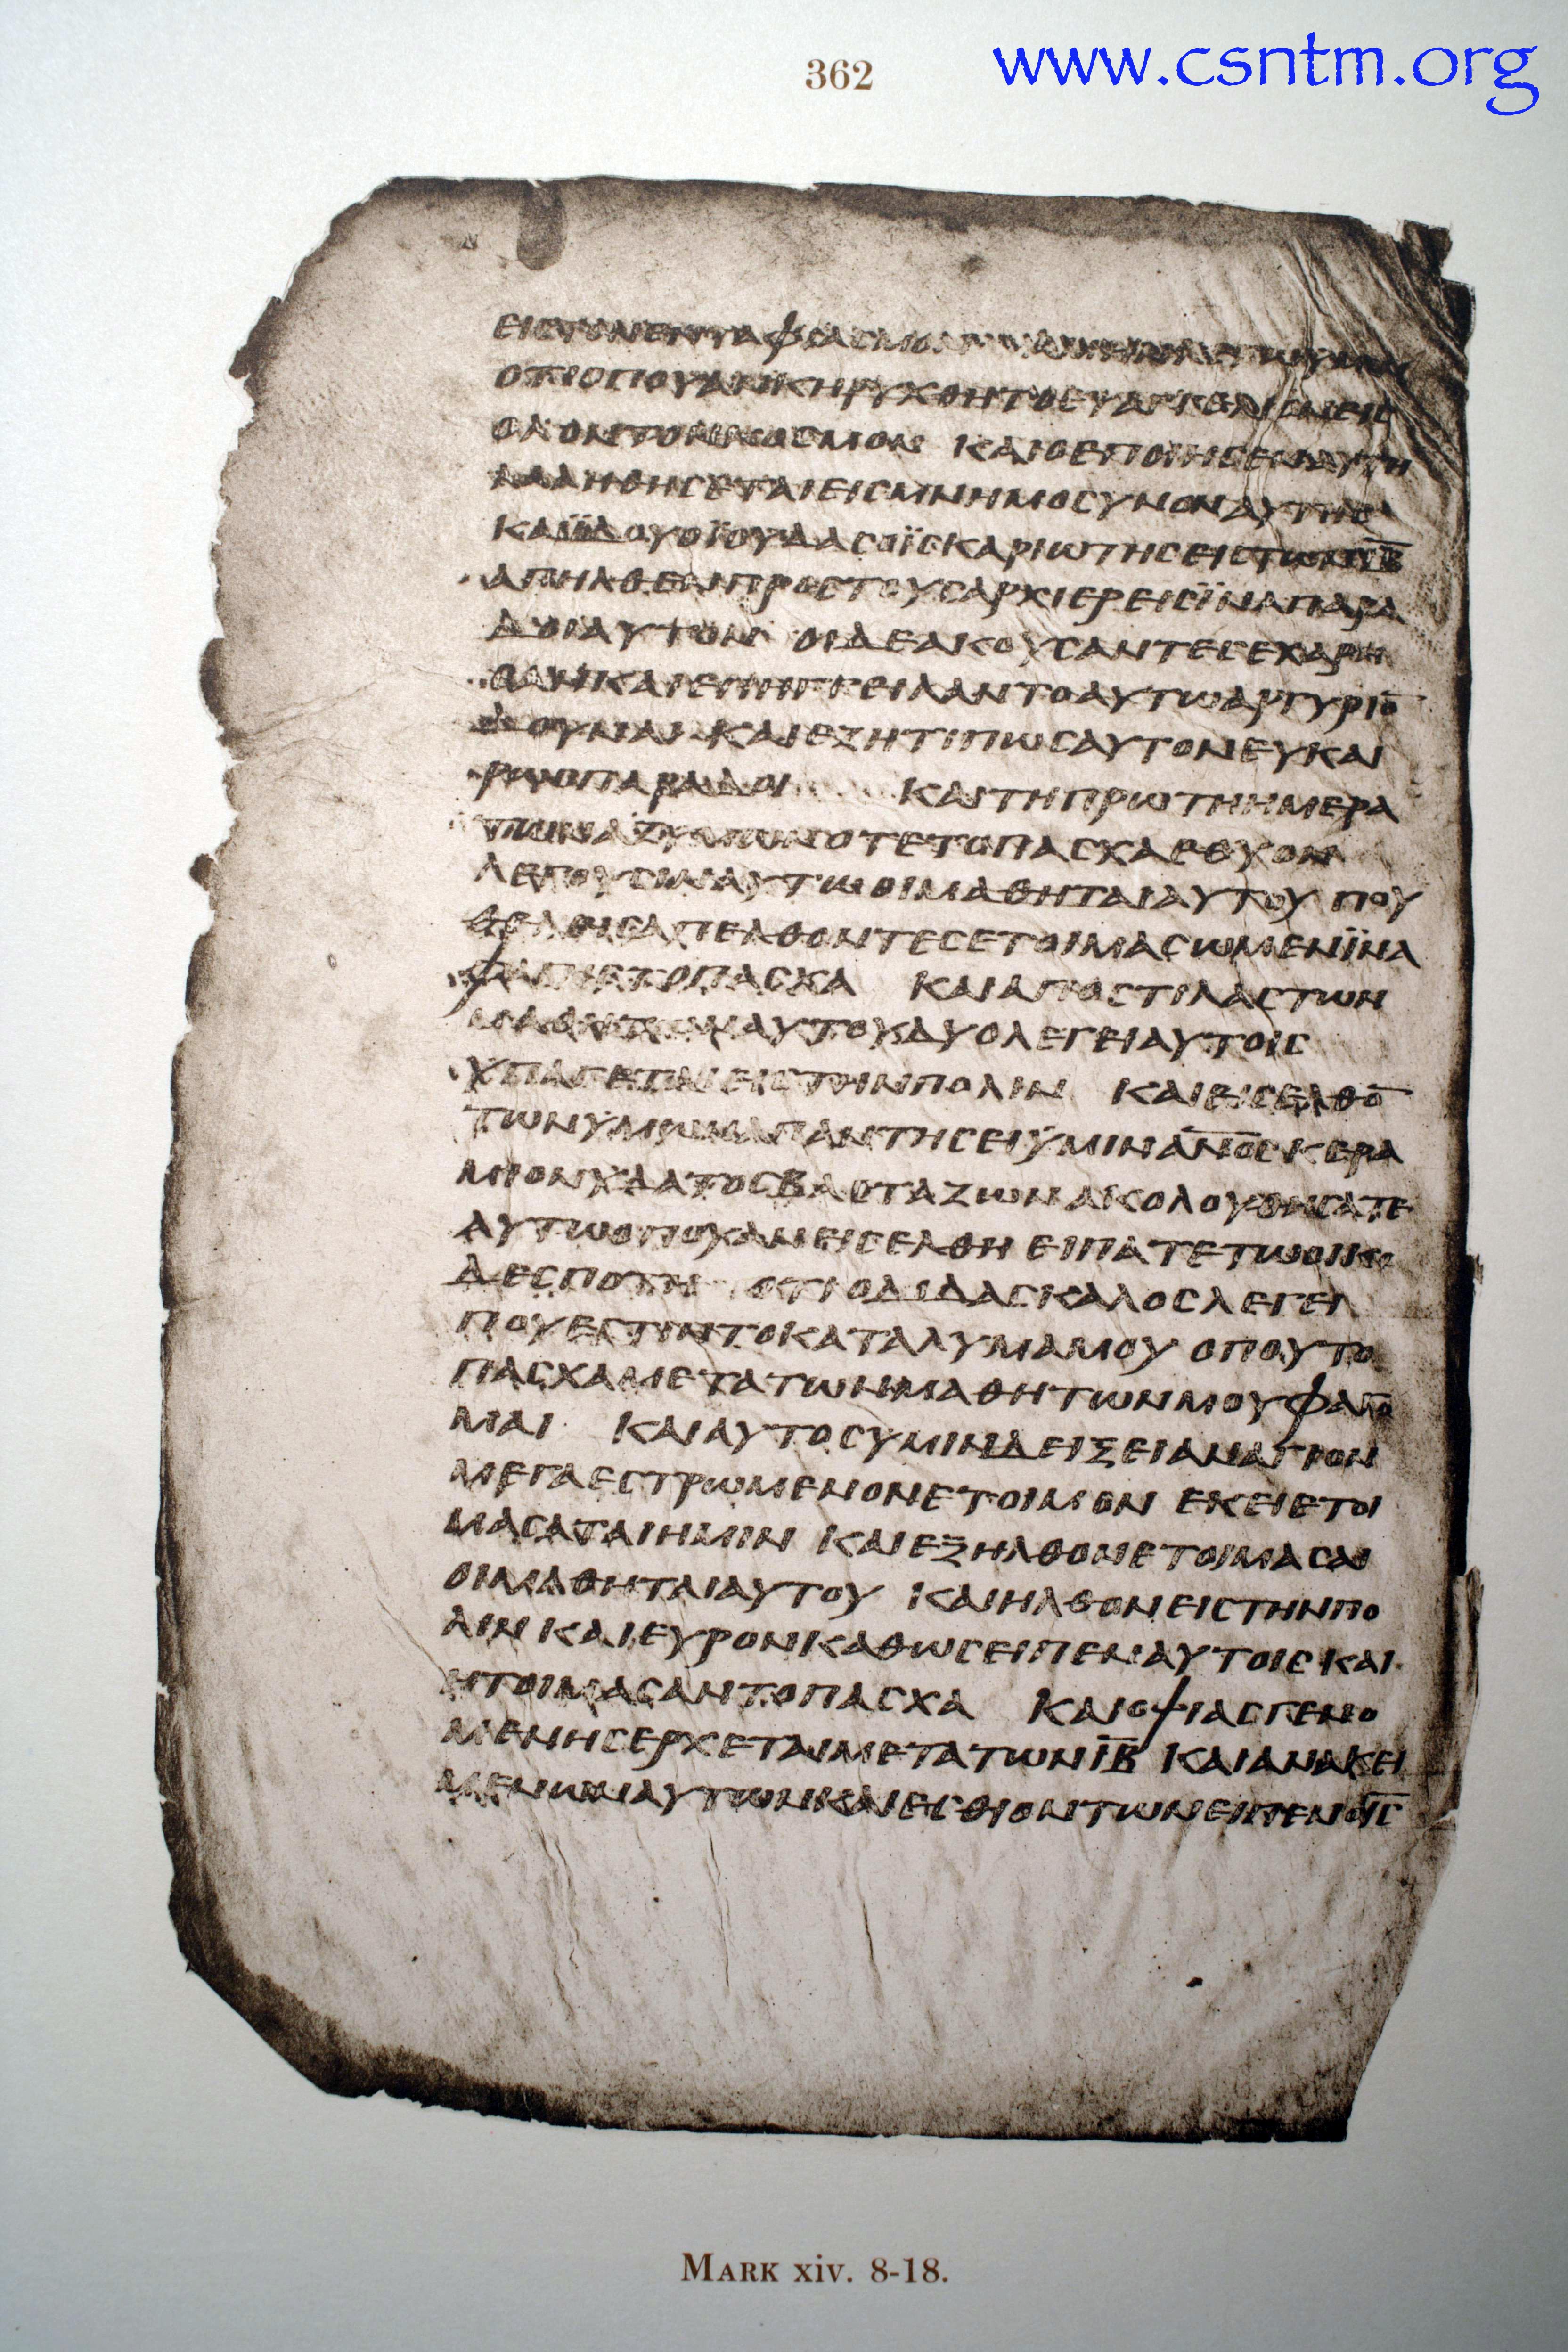 362
www.csntm.org
ΕΙΣΤΟΝΕΝΤΑΦΙΑСΜΟΝ
ΟΤΙΟΠΟΥΑΝΚΗΡΥΧΘΗΤΟΕΥΑΓΓΕΛΙΟΝΕΙС
ΟΛΟΝΤΟΝΚΟСΜΟΝ ΚΑΙΟΕΠΟΙΗСΕΝΑΥΤΗ
ΛΑΛΗΘΗСΕΤΑΙΕΙСΜΝΗΜΟСΥΝΟΝΑΥΤΗС
ΚΑΙΪΔΟΥΟΪΟΥΔΑСΟΪСΚΑΡΙΩΤΗСΕΙСΤΩΝΙ̅Β̅
ΑΠΗΛΘΕΝΠΡΟСΤΟΥСΑΡΧΙΕΡΕΙСΪΝΑΠΑΡΑ
ΔΟΙΑΥΤΟΝ ΟΙΔΕΑΚΟΥСΑΝΤΕСΕΧΑΡΗ
СΑΝΚΑΙΕΠΗΓΓΕΙΛΑΝΤΟΑΥΤΩΑΡΓΥΡΙΟ̅
ΔΟΥΝΑΙ ΚΑΙΕΖΗΤΙΠΩСΑΥΤΟΝΕΥΚΑΙ
ΡΩСΠΑΡΑΔΟΙ ΚΑΙΤΗΠΡΩΤΗΗΜΕΡΑ
ΤΩΝΑΖΥΜΩΝΟΤΕΤΟΠΑСΧΑΕΘΥΟΝ
ΛΕΓΟΥСΙΝΑΥΤΩΟΙΜΑΘΗΤΑΙΑΥΤΟΥ ΠΟΥ
ΘΕΛΕΙСΑΠΕΛΘΟΝΤΕСΕΤΟΙΜΑСΩΜΕΝΪΝΑ
ΦΑΓΗСΤΟΠΑСΧΑ ΚΑΙΑΠΟСΤΙΛΑСΤΩΝ
ΜΑΘΗΤΩΝΑΥΤΟΥΔΥΟΛΕΓΕΙΑΥΤΟΙС
ΥΠΑΓΕΤΕΕΙСΤΗΝΠΟΛΙΝ ΚΑΙΕΙСΕΛΘΟ̅
ΤΩΝΥΜΩΝΑΠΑΝΤΗСΕΙΫΜΙΝΑ̅Ν̅Ο̅С̅ΚΕΡΑ
ΜΙΟΝΥΔΑΤΟСΒΑСΤΑΖΩΝΑΚΟΛΟΥΘΗСΑΤΕ
ΑΥΤΩΟΠΟΥΑΝΕΙСΕΛΘΗ ΕΙΠΑΤΕΤΩΟΙΚΟ
ΔΕСΠΟΤΗ ΟΤΙΟΔΙΔΑСΚΑΛΟСΛΕΓΕΙ
ΠΟΥΕСΤΙΝΤΟΚΑΤΑΛΥΜΑΜΟΥ ΟΠΟΥΤΟ
ΠΑСΧΑΜΕΤΑΤΩΝΜΑΘΗΤΩΝΜΟΥΦΑΓΟ
ΜΑΙ ΚΑΙΑΥΤΟСΥΜΙΝΔΕΙΞΕΙΑΝΑΓΙΟΝ
ΜΕΓΑΕСΤΡΩΜΕΝΟΝΕΤΟΙΜΟΝ ΕΚΕΙΕΤΟΙ
ΜΑСΑΤΑΙΗΜΙΝ ΚΑΙΕΞΗΛΘΟΝΕΤΟΙΜΑСΑΙ
ΟΙΜΑΘΗΤΑΙΑΥΤΟΥ ΚΑΙΗΛΘΟΝΕΙСΤΗΝΠΟ
ΛΙΝΚΑΙΕΥΡΟΝΚΑΘΩСΕΙΠΕΝΑΥΤΟΙСΚΑΙ
ΗΤΟΙΜΑСΑΝΤΟΠΑСΧΑ ΚΑΙΟΨΙΑСΓΕΝΟ
ΜΕΝΗСΕΡΧΕΤΑΙΜΕΤΑΤΩΝΙ̅Β̅ ΚΑΙΑΝΑΚΕΙ
ΜΕΝΩΝΑΥΤΩΝΚΑΙΕСΘΙΟΝΤΩΝΕΙΠΕΝΟΙ̅С̅
MARK xiv. 8-18.